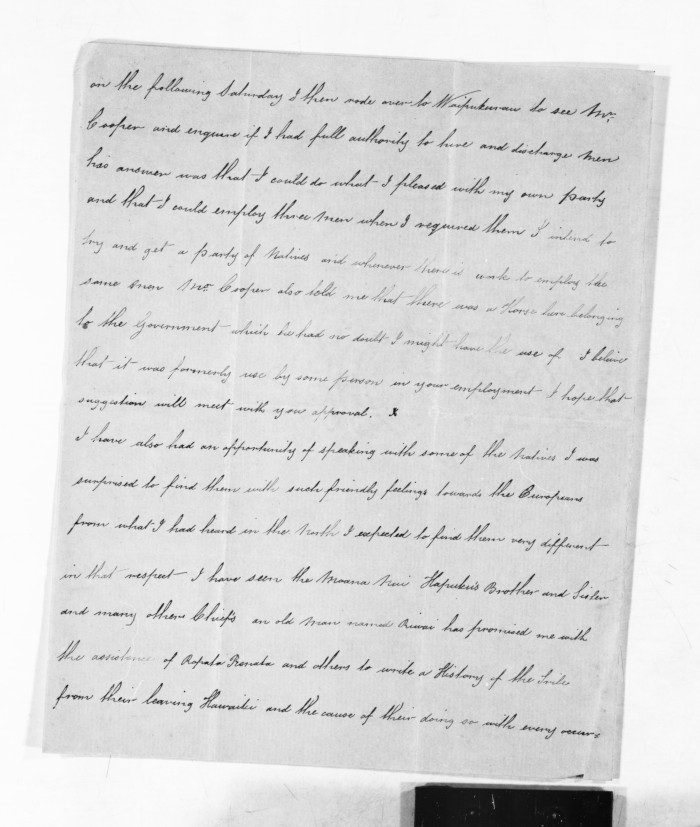 on the following Saturday I then rode over to Waipukurau to see Mr.
Cooper and enquire if I had full authority to hire and discharge men
his answer was that I could do what I pleased with my own party
and that I could employ three men when I required them I intend to
try and get a party of Natives and whenever there is work to employ the
same men Mr. Cooper also told me that there was a Horse here belonging
to the Government which he had no doubt I might have the use of I believe
that it was formerly use by some person in your employment I hope that
suggestion will meet with you approval. x
I have also had an opportunity of speaking with some of the Natives I was
surprised to find them with such friendly feelings towards the Europeans
from what I had heard in the North I expected to find them very different
in that respect I have seen the Moana Nui Hapuku's Brother and Sister
and many others Chiefs an old man named Riwai has promised me with
the assistance of Rapata Renata and others to write a History of the Tribe
from their leaving Hawaiki and the cause of their doing so with every occur=